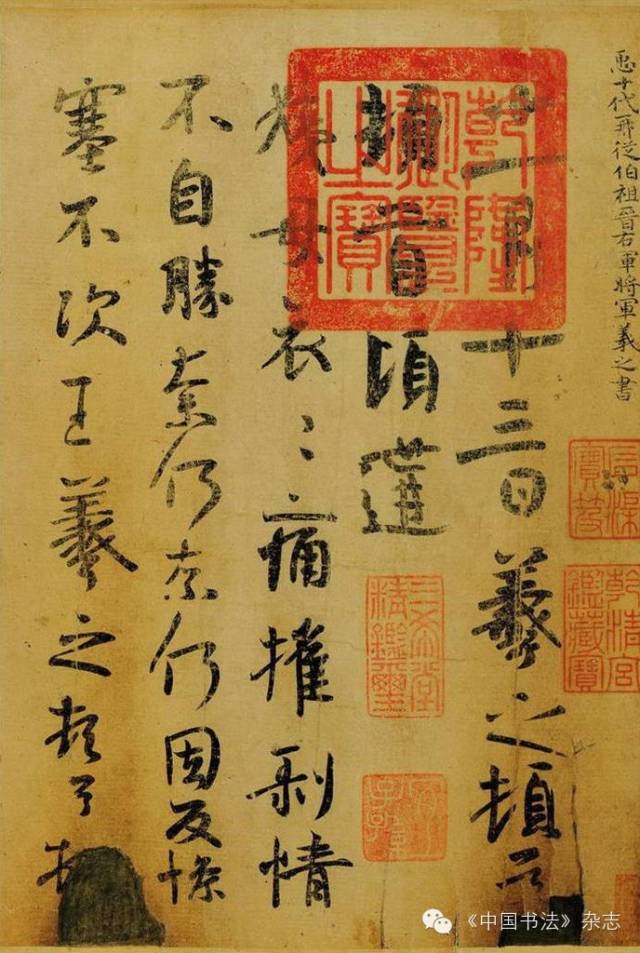 𢘑十代再從伯祖晉右軍將軍羲之書
十一月十三日羲之頓首
頓首頃遘
姨母哀〻痛摧剥情
不自勝奈何奈何因反慘
塞不次王羲之頓首頓
乾隆御覽之寶
石渠寶笈
乾清宮鑑藏寶
三希堂精鑑璽
宜子孫
《中国书法》杂志